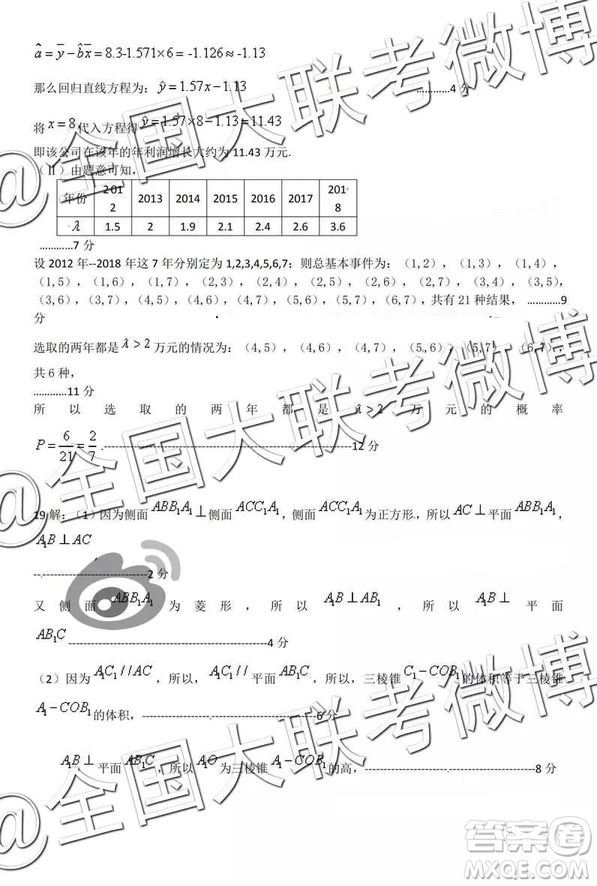 â = ȳ − b̂x̄ = 8.3-1.571×6 = -1.126≈-1.13
那么回归直线方程为：ŷ=1.57x−1.13 …………4 分
将 x=8 代入方程得 ŷ=1.57×8−1.13=11.43
即该公司在该年的年利润增长大约为 11.43 万元.
（Ⅱ）由题意可知，
年份 2012 2013 2014 2015 2016 2017 2018
λ 1.5 2 1.9 2.1 2.4 2.6 3.6
…………7 分
设 2012 年--2018 年这 7 年分别定为 1,2,3,4,5,6,7；则总基本事件为：（1,2），（1,3），（1,4），
（1,5），（1,6），（1,7），（2,3），（2,4），（2,5），（2,6），（2,7），（3,4），（3,5），
（3,6），（3,7），（4,5），（4,6），（4,7），（5,6），（5,7），（6,7），共有 21 种结果， …………9
分
选取的两年都是 λ>2 万元的情况为：（4,5），（4,6），（4,7），（5,6），（5,7），（6,7），
共 6 种，
…………11 分
所以选取的两年都是 λ>2 万元的概率
P=6/21=2/7.------------------------------------------12 分
19 解：（1）因为侧面 ABB₁A₁⊥侧面 ACC₁A₁，侧面 ACC₁A₁为正方形，所以 AC⊥平面 ABB₁A₁，
A₁B⊥AC
----------------------------2 分
又侧面 ABB₁A₁ 为菱形，所以 A₁B⊥AB₁，所以 A₁B⊥平面
AB₁C------------------------------------------------4 分
（2）因为 A₁C₁//AC，所以，A₁C₁//平面 AB₁C，所以，三棱锥 C₁−COB₁ 的体积等于三棱锥
A₁−COB₁的体积，------------------------------------------6 分
A₁B⊥平面 AB₁C，所以 A₁O 为三棱锥 A₁−COB₁ 的高，------------------------------------------8 分
@全国大联考微博
@全国大联考微博
@全国大联考微博
答案圈
MXQE.COM